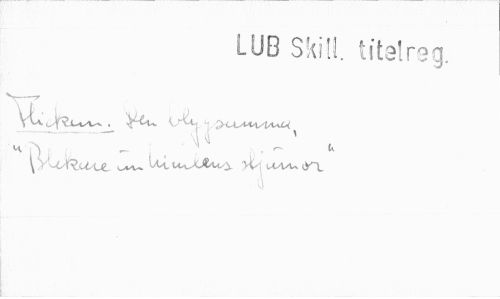 LUB Skill. titelreg.
Flickan. Den blygsamma,
"Blekare än himlens stjärnor"